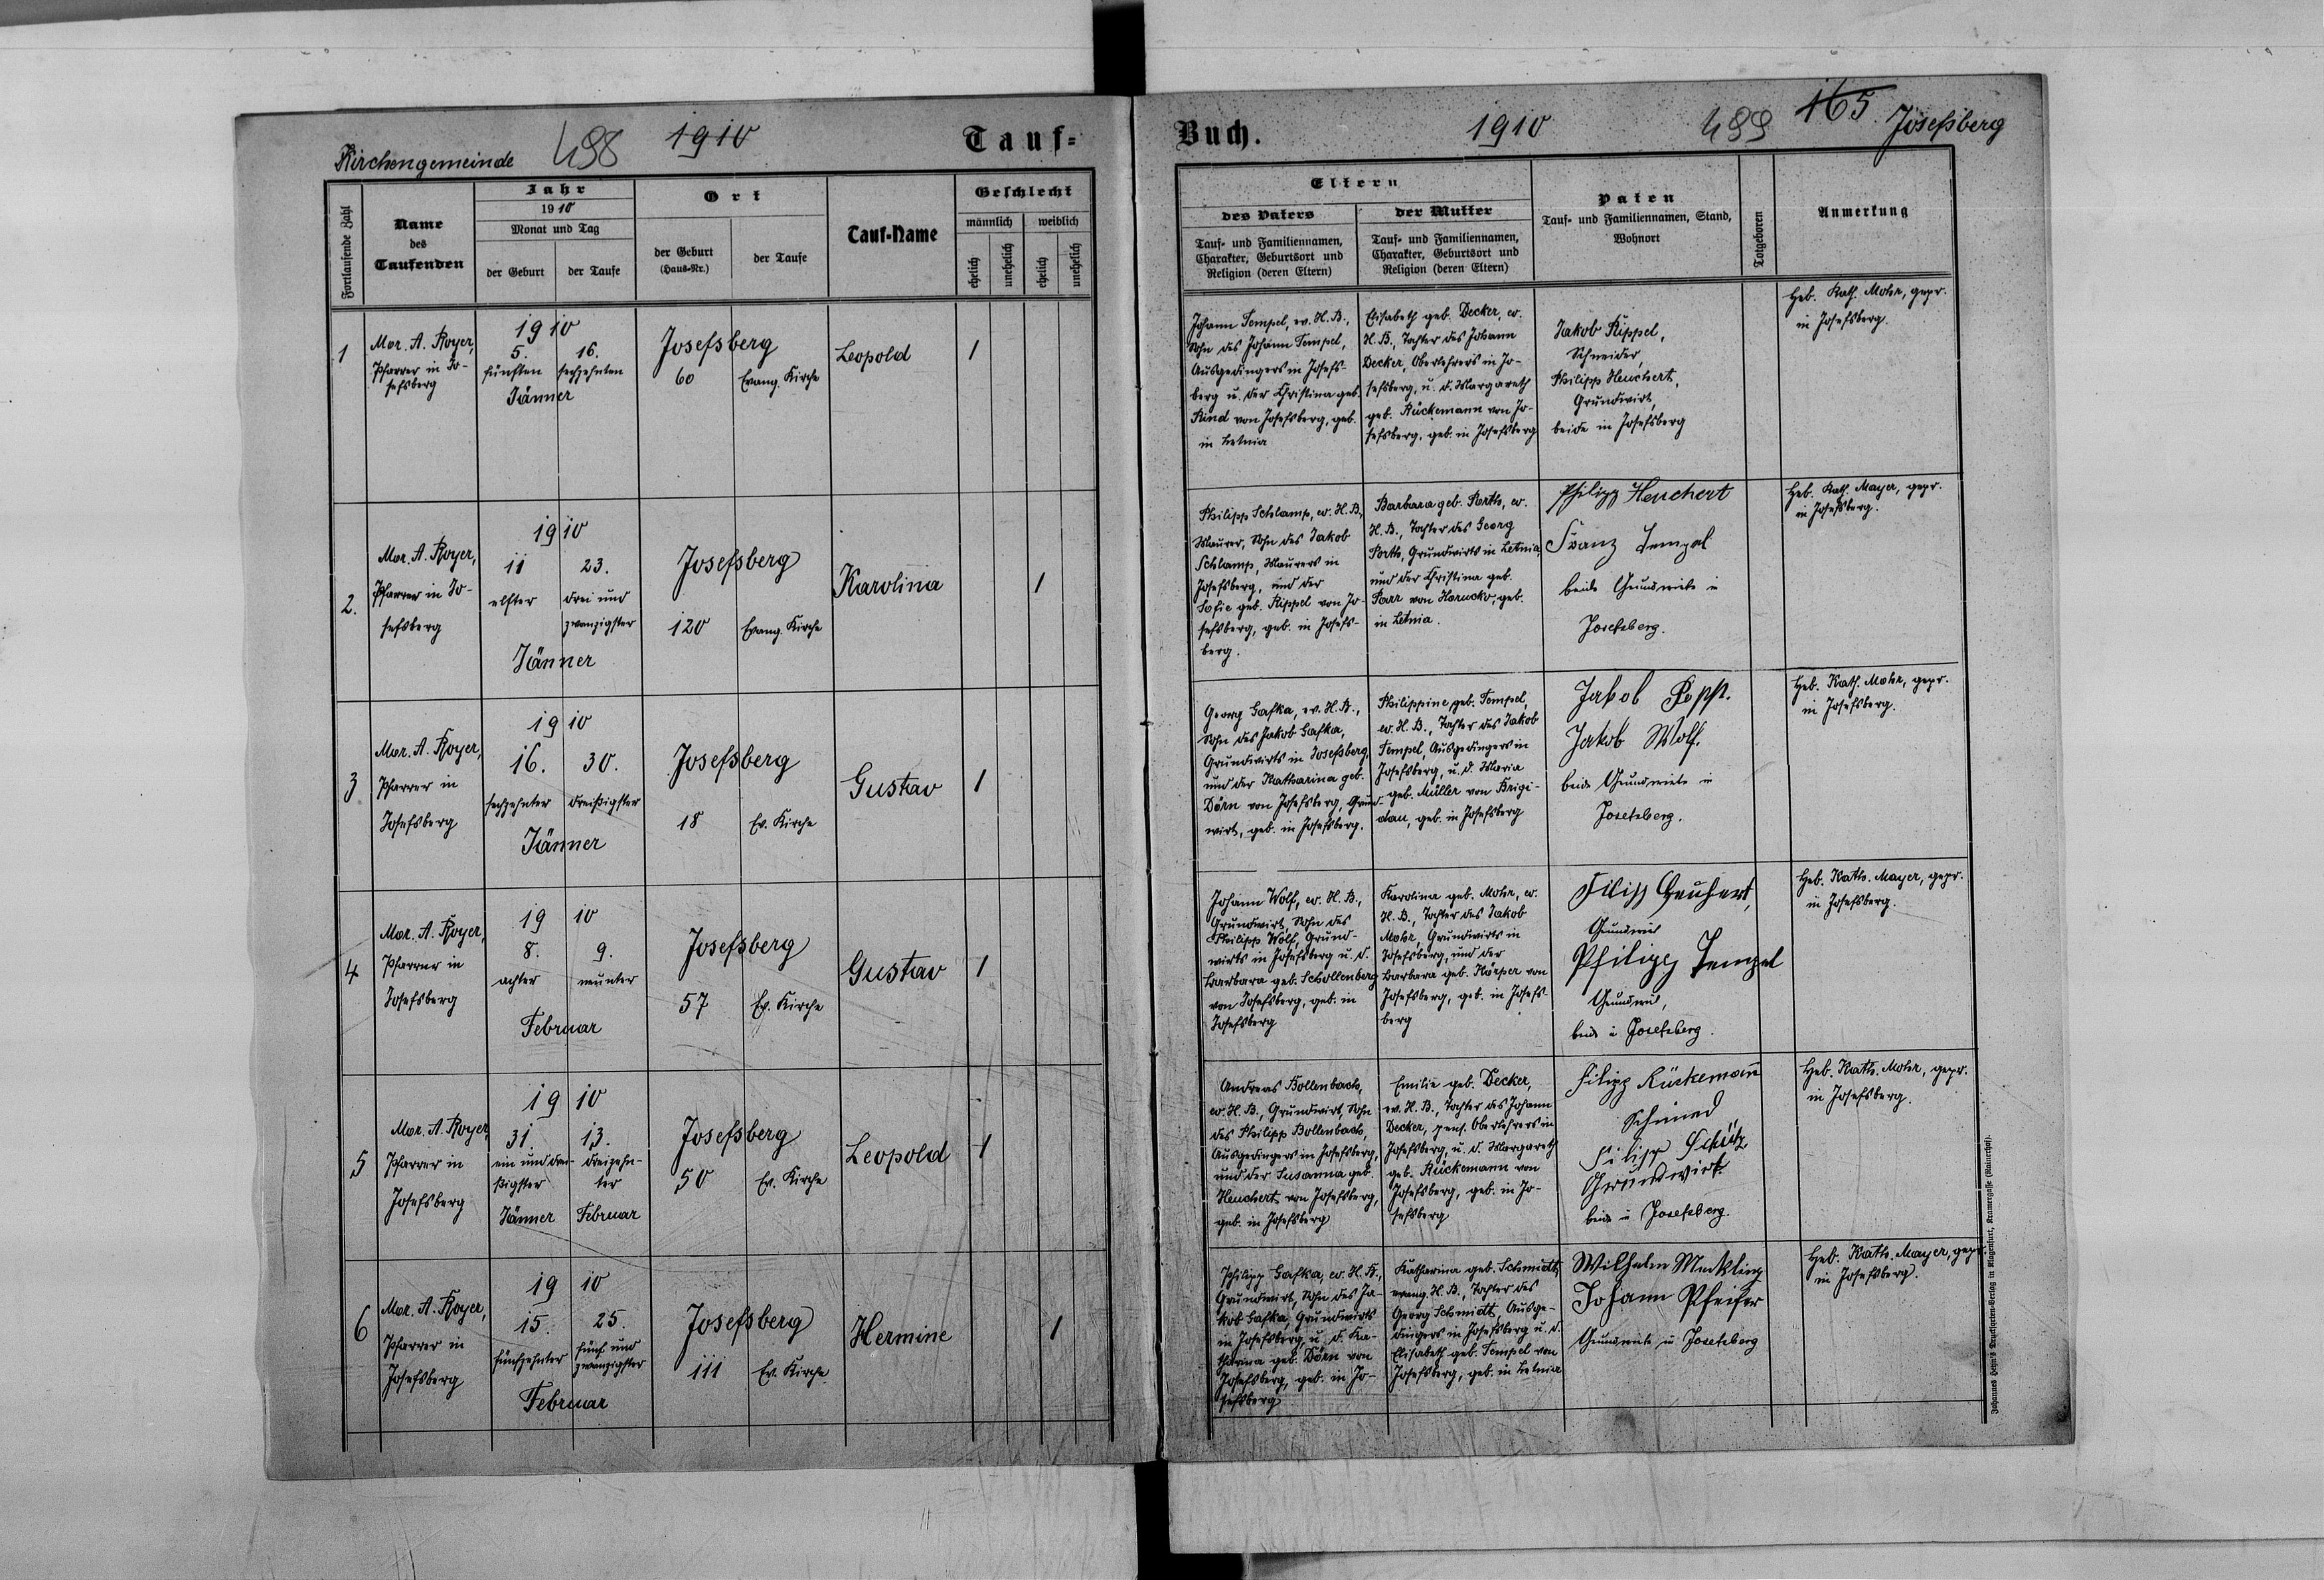 Kirchengemeinde 498 1910 Tauf=
Fortlaufende Zahl
Name
des
Taufenden
Jahr
1910
Monat und Tag
der Geburt
der Taufe
Ort
der Geburt
(Haus-Nr.)
der Taufe
Tauf-Name
Geschlecht
männlich weiblich
ehelich
unehelich
ehelich
unehelich
1
Mor. A. Royer,
Pfarrer in Jo-
sefsberg
1910
5. 16.
fünften sechzehnten
Jänner
Josefsberg
60 Evang. Kirche
Leopold
1
2.
Mor. A. Royer,
Pfarrer in Jo-
sefsberg
1910
11 23.
elfter drei und
zwanzigster
Jänner
Josefsberg
120 Evang. Kirche
Karolina
1
3
Mor. A. Royer,
Pfarrer in
Josefsberg
1910
16. 30.
sechzehnter dreißigster
Jänner
Josefsberg
18 Ev. Kirche
Gustav
1
4
Mor. A. Royer,
Pfarrer in
Josefsberg
1910
8. 9.
achter neunter
Februar
Josefsberg
57 Ev. Kirche
Gustav
1
5
Mor. A. Royer,
Pfarrer in
Josefsberg
1910
31. 13.
ein und drei- dreizehn-
ßigster ter
Jänner Februar
Josefsberg
50 Ev. Kirche
Leopold
1
6
Mor. A. Royer,
Pfarrer in
Josefsberg
1910
15. 25.
fünfzehnter fünf und
zwanzigster
Februar
Josefsberg
111 Ev. Kirche
Hermine
1
Buch. 1910 499 165 Josefsberg
Eltern
des Vaters
Tauf- und Familiennamen,
Charakter, Geburtsort und
Religion (deren Eltern)
der Mutter
Tauf- und Familiennamen,
Charakter, Geburtsort und
Religion (deren Eltern)
Paten
Tauf- und Familiennamen, Stand,
Wohnort
Totgeboren
Anmerkung
Johann Tempel, ev. H. B.,
Sohn des Johann Tempel,
Ausgedingers in Josefs-
berg u. der Christina geb.
Rind von Josefsberg, geb.
in Letnia
Elisabeth geb. Decker, ev.
H. B., Tochter des Johann
Decker, Oberlehrers in Jo-
sefsberg, u. d. Margareth
geb. Rückemann von Jo-
sefsberg, geb. in Josefsberg
Jakob Rippel,
Schneider,
Philipp Heuchert,
Grundwirt,
beide in Josefsberg
Heb. Kath. Mohr, gepr.
in Josefsberg.
Philipp Schlamp, ev. H. B.,
Maurer, Sohn des Jakob
Schlamp, Maurers in
Josefsberg, und der
Sofie geb. Rippel von Jo-
sefsberg, geb. in Josefs-
berg.
Barbara geb. Porth, ev.
H. B., Tochter des Georg
Porth, Grundwirts in Letnia,
und der Christina geb.
Parr von Horucko, geb.
in Letnia.
Philipp Heuchert
Franz Tempel
beide Grundwirte in
Josefsberg.
Heb. Kath. Mayer, gepr.
in Josefsberg.
Georg Gafka, ev. H. B.,
Sohn des Jakob Gafka,
Grundwirts in Josefsberg,
und der Katharina geb.
Dörn von Josefsberg, Grund-
wirt, geb. in Josefsberg.
Philippine geb. Tempel,
ev. H. B., Tochter des Jakob
Tempel, Ausgedingers in
Josefsberg, u. d. Maria
geb. Müller von Brigi-
dau, geb. in Josefsberg
Jakob
Jakob Wolf.
beide Grundwirte in
Josefsberg.
Heb. Kath. Mohr, gepr.
in Josefsberg.
Johann Wolf, ev. H. B.,
Grundwirt, Sohn des
Philipp Wolf, Grund-
wirts in Josefsberg u. d.
Barbara geb. Schollenberg
von Josefsberg, geb. in
Josefsberg
Karolina geb. Mohr, ev.
H. B., Tochter des Jakob
Mohr, Grundwirts in
Josefsberg, und der
Barbara geb. Körper von
Josefsberg, geb. in Josefs-
berg
Filipp
Grundwirt
Philipp Tempel
Grundwirt,
beide in Josefsberg.
Heb. Kath. Mayer, gepr.
in Josefsberg.
Andreas Bollenbach,
ev. H. B., Grundwirt, Sohn
des Philipp Bollenbach,
Ausgedingers in Josefsberg,
und der Susanna geb.
Heuchert von Josefsberg,
geb. in Josefsberg
Emilie geb. Decker,
ev. H. B., Tochter des Johann
Decker, pens. Oberlehrers in
Josefsberg, u. d. Margareth
geb. Rückemann von
Josefsberg, geb. in Jo-
sefsberg
Filipp Rückemann
Schmied
Filipp Schütz
Grundwirt
beide in Josefsberg.
Heb. Kath. Mohr, gepr.
in Josefsberg.
Philipp Gafka, ev. H. B.,
Grundwirt, Sohn des Ja-
kob Gafka, Grundwirts
in Josefsberg u. d. Ka-
tharina geb. Dörn von
Josefsberg, geb. in Jo-
sefsberg
Katharina geb. Schmidt,
evang. H. B., Tochter des
Georg Schmidt, Ausge-
dingers in Josefsberg u. d.
Elisabeth geb. Tempel von
Josefsberg, geb. in Letnia
Wilhelm
Johann Pfeifer
Grundwirte in Josefsberg
Heb. Kath. Mayer, gepr.
in Josefsberg.
Johannes Heyn's Drucksorten-Verlag in Klagenfurt, Kramergasse (Rainerhof).